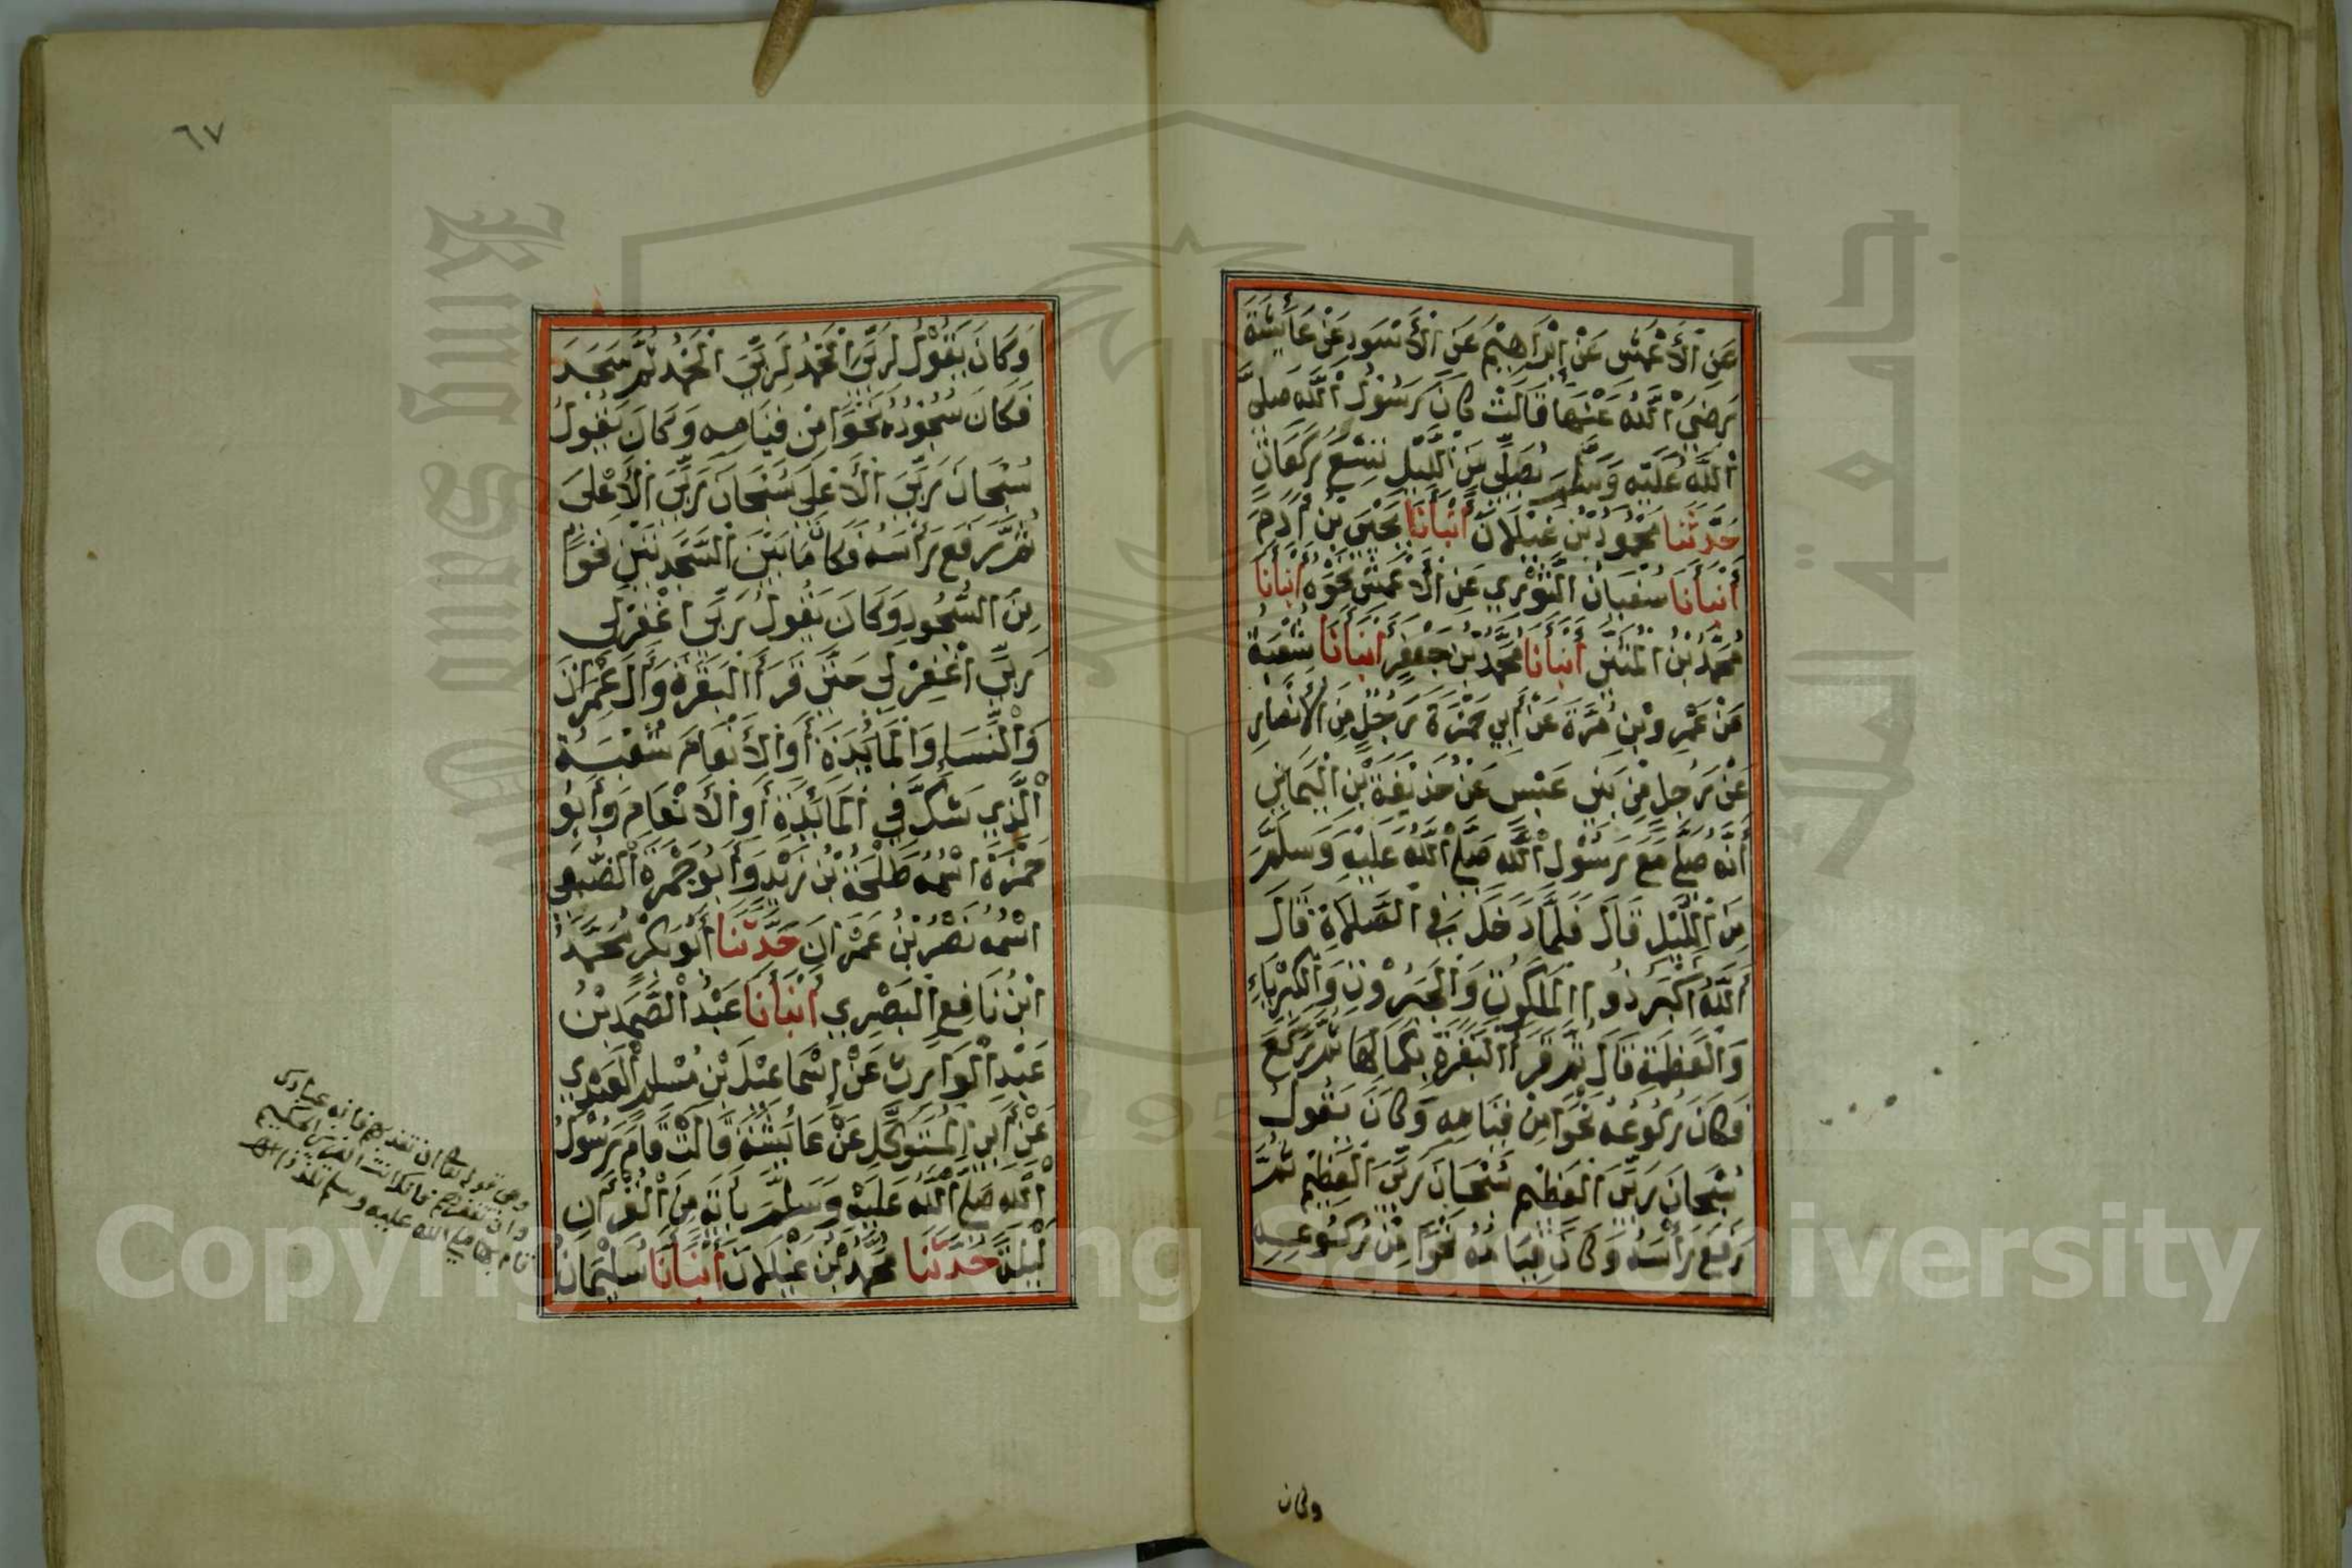 عَنِ الْأَعْمَشِ عَنْ إِبْرَاهِيْمَ عَنِ الْأَسْوَدِ عَنْ عَائِشَةَ
رَضِيَ اللَّهُ عَنْهَا قَالَتْ كَانَ رَسُوْلُ اللَّهِ صَلَّى
اللَّهُ عَلَيْهِ وَسَلَّمَ يُصَلِّي مِنَ اللَّيْلِ تِسْعَ رَكَعَاتٍ
حَدَّثَنَا مَحْمُودُ بْنُ غَيْلَانَ أَنْبَأَنَا يَحْيَى بْنُ آدَمَ
أَنْبَأَنَا سُفْيَانُ الثَّوْرِي عَنِ الْأَعْمَشِ نَحْوَهُ أَنْبَأَنَا
مُحَمَّدُ بْنُ الْمُثَنَّى أَنْبَأَنَا مُحَمَّدُ بْنُ جَعْفَرٍ أَنْبَأَنَا شُعْبَةُ
عَنْ عَمْرِو بْنِ مُرَّةَ عَنْ أَبِي حَمْزَةَ رَجُلٍ مِنَ الْأَنْصَارِ
عَنْ رَجُلٍ مِنْ بَنِي عَبْسٍ عَنْ حُذَيْفَةَ بْنِ الْيَمَانِي
أَنَّهُ صَلَّى مَعَ رَسُوْلِ اللَّهِ صَلَّى اللَّهُ عَلَيْهِ وَسَلَّمَ
مِنَ اللَّيْلِ قَالَ فَلَمَّا دَخَلَ فِي الصَّلَاةِ قَالَ
اللَّهُ أَكْبَرُ ذُو الْمَلَكُوتِ وَالْجَبَرُوْتِ وَالْكِبْرِيَاءِ
وَالْعَظَمَةِ قَالَ ثُمَّ قَرَأَ الْبَقَرَةَ بِكَمَالِهَا ثُمَّ رَكَعَ
فَكَانَ رُكُوعُهُ نَحْوًا مِنْ قِيَامِهِ وَكَانَ يَقُولُ
سُبْحَانَ رَبِّيَ الْعَظِيْمِ سُبْحَانَ رَبِّيَ الْعَظِيْمِ ثُمَّ
رَفَعَ رَأْسَهُ وَكَانَ قِيَامُهُ نَحْوًا مِنْ رُكُوعِهِ
وكان
٦٧
وَكَانَ يَقُوْلُ لِرَبِّيَ الْحَمْدُ لِرَبِّيَ الْحَمْدُ ثُمَّ سَجَدَ
فَكَانَ سُجُودُهُ نَحْوًا مِنْ قِيَامِهِ وَكَانَ يَقُولُ
سُبْحَانَ رَبِّيَ الْأَعْلَى سُبْحَانَ رَبِّيَ الْأَعْلَى
ثُمَّ رَفَعَ رَأْسَهُ فَكَانَ مَا بَيْنَ السَّجْدَتَيْنِ نَحْوًا
مِنَ السُّجُودِ وَكَانَ يَقُولُ رَبِّي اغْفِرْ لِي
رَبِّي اغْفِرْ لِي حَتَّى قَرَأَ الْبَقَرَةَ وَآلَ عِمْرَانَ
وَالنِّسَاءِ وَالْمَائِدَةَ أَوِ الْأَنْعَامَ شُعْبَةُ
الَّذِي شَكَّ فِي الْمَائِدَةِ أَوِ الْأَنْعَامِ وَأَبُو
حَمْزَةَ اسْمُهُ طَلْحَةُ بْنُ زَيْدٍ وَأَبُو جَمْرَةَ الضُّبَعِي
اسْمُهُ نَصْرُ بْنُ عِمْرَانَ حَدَّثَنَا أَبُو بَكْرٍ مُحَمَّدُ
ابْنُ نَافِعٍ الْبَصْرِي أَنْبَأَنَا عَبْدُ الصَّمَدِ بْنُ
عَبْدِ الْوَارِثِ عَنْ إِسْمَاعِيْلَ بْنِ مُسْلِمٍ الْعَبْدِي
عَنْ أَبِي الْمُتَوَكِّلِ عَنْ عَائِشَةَ قَالَتْ قَامَ رَسُوْلُ
اللَّهِ صَلَّى اللَّهُ عَلَيْهِ وَسَلَّمَ بِآيَةٍ مِنَ الْقُرْآنِ
لَيْلَةً حَدَّثَنَا مَحْمُودُ بْنُ غَيْلَانَ أَنْبَأَنَا سُلَيْمَانُ
وهي قوله تعالى ان تعذبهم فانهم عبادك
وان تغفر لهم فانك انت العزيز الحكيم
قام بها صلى الله عليه وسلم
Copyright © King Saud University
جامعة الملك
King Saud
195